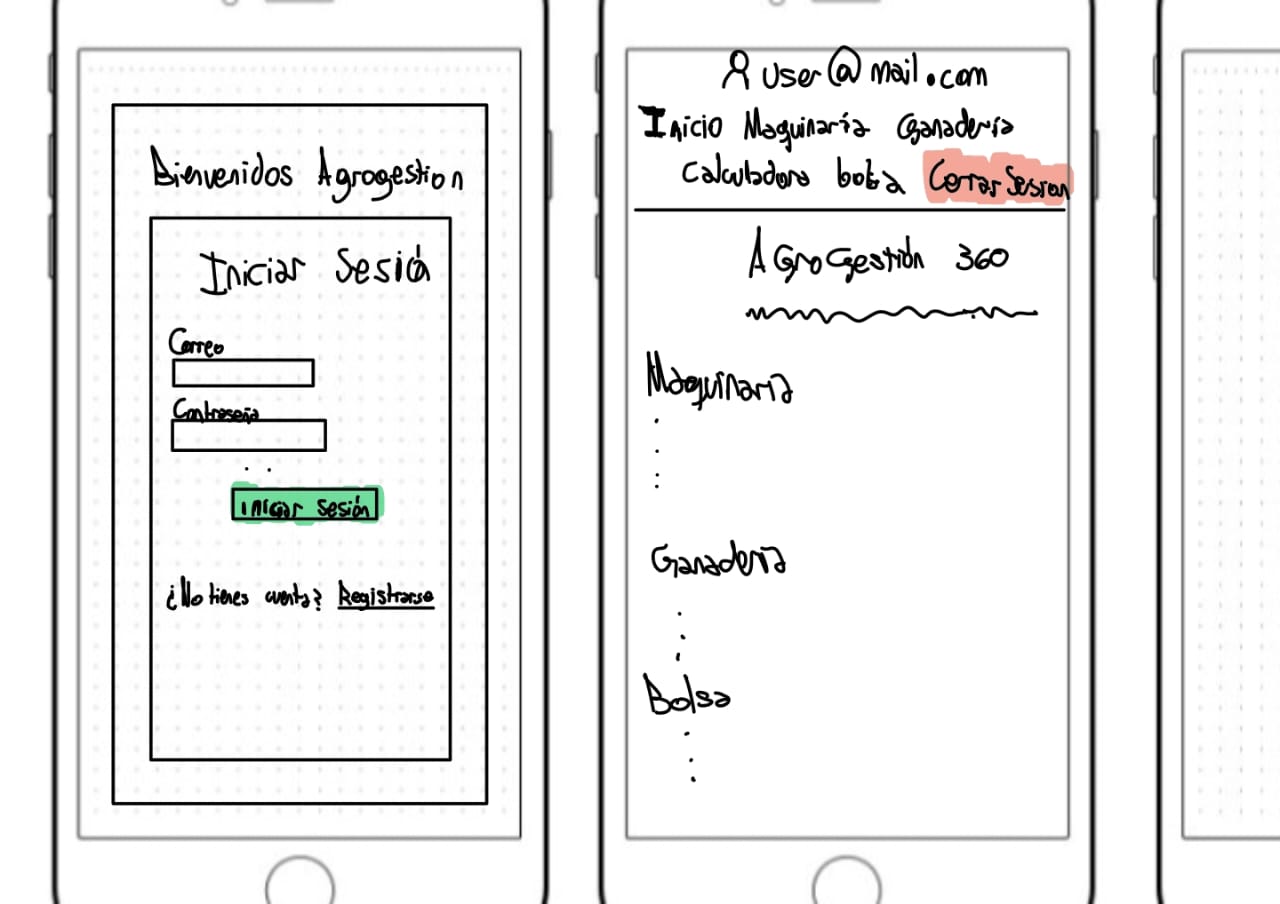 Bienvenidos Agrogestion
Iniciar Sesió
Correo
Contraseña
Iniciar Sesión
¿No tienes cuenta? Registrarse
User@mail.com
Inicio Maquinaría Ganadería
Calculadora bolsa Cerrar Sesion
AGroGestión 360
Maquinaría
Ganadería
Bolsa